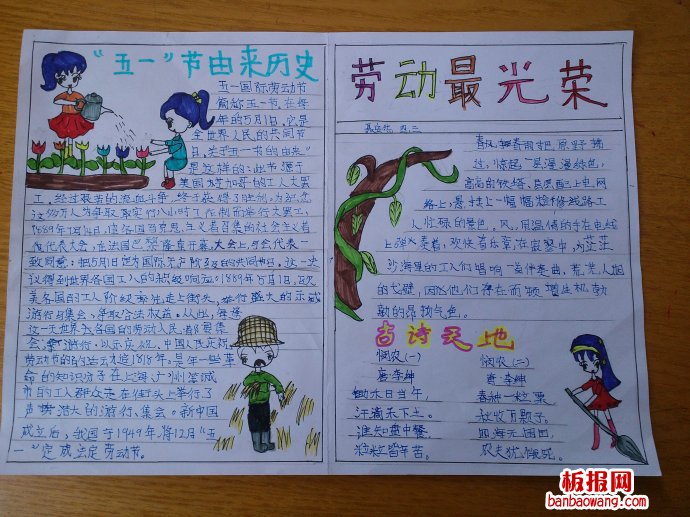 “五一”节由来历史
五一国际劳动节
简称五一节,在每
年的5月1日。它是
全世界人民的共同节
日。关于五一节的由来”
是这样的:此节源于
美国芝加哥的工人大罢
工,经过艰苦的流血斗争,终于获得了胜利。为纪念
1889年7月14日,由各国马克思主义者召集的社会主义者
代表大会,在法国巴黎隆重开幕。大会上与会代表一
致同意:把5月1日定为国际无产阶级的共同节日。这一决
议得到世界各国工人的积极响应。1889年5月1日,欧
美各国的工人阶级率先走上街头,举行盛大的示威
游行与集会,争取合法权益。从此,每逢
这一天世界各国的劳动人民都要集
会、游行,以示庆祝。中国人民庆祝
劳动节的活动可追1818年。是年一些革
命的知识分子在上海、广州等城
市的工人群众走在街头举行了
声势浩大的游行、集会。新中国
成立后,我国于1949年将12月“五
一”定成法定劳动节。
劳动最光荣
四、二
春风
过,惊起一层漫漫绿色,
高高的铁塔
路上,悬挂上一幅幅检修线路工
人忙碌的景色。风,用温情的手在电线
上弹奏着,欢快音乐章,在寂寥中,为茫茫
沙海里的工人们唱响一首伴奏曲,荒芜人烟
的戈壁,因他们存在而顿增生机勃
勃的昂扬气色。
古诗天地
悯农(一)
唐·李绅
锄水日当午,
汗滴禾下土。
谁知盘中餐,
粒粒皆辛苦。
悯农(二)
唐·李绅
春种一粒粟,
秋收万颗子。
四海无闲田,
农夫犹饿死。
板报网
banbaowang.com